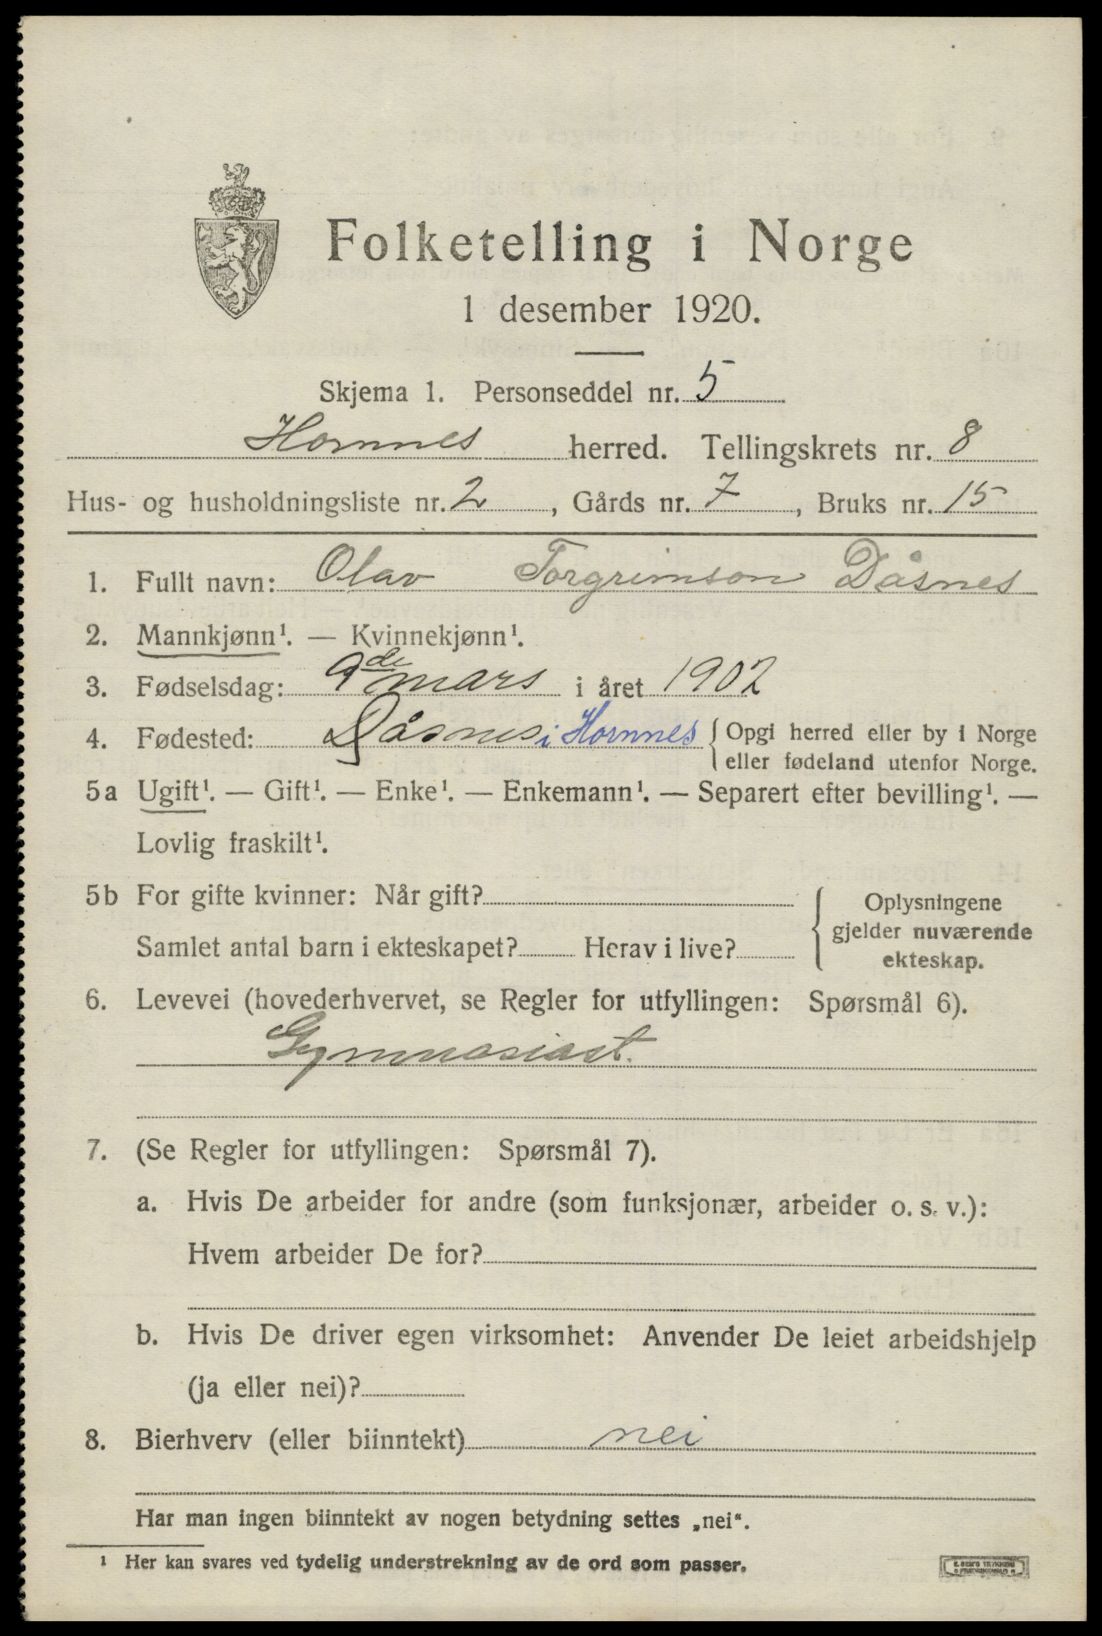 Folketelling i Norge
1 desember 1920.
Skjema 1. Personseddel nr. 5
Hornnes herred. Tellingskrets nr. 8
Hus- og husholdningsliste nr. 2, Gårds nr. 7, Bruks nr. 15
1. Fullt navn: Olav Torgrimson Dåsnes
2. Mannkjønn¹. — Kvinnekjønn¹.
3. Fødselsdag: 9de mars i året 1902
4. Fødested: Dåsnes i Hornnes { Opgi herred eller by i Norge
eller fødeland utenfor Norge.
5a Ugift¹. — Gift¹. — Enke¹. — Enkemann¹. — Separert efter bevilling¹. —
Lovlig fraskilt¹.
5b For gifte kvinner: Når gift?
Samlet antal barn i ekteskapet? Herav i live?
{ Oplysningene
gjelder nuværende
ekteskap.
6. Levevei (hovederhvervet, se Regler for utfyllingen: Spørsmål 6).
Gymnasiast.
7. (Se Regler for utfyllingen: Spørsmål 7).
a. Hvis De arbeider for andre (som funksjonær, arbeider o. s. v.):
Hvem arbeider De for?
b. Hvis De driver egen virksomhet: Anvender De leiet arbeidshjelp
(ja eller nei)?
8. Bierhverv (eller biinntekt) nei
Har man ingen biinntekt av nogen betydning settes „nei“.
¹ Her kan svares ved tydelig understrekning av de ord som passer.